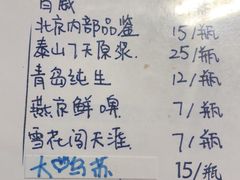 百威
北京内部品鉴 15/瓶
泰山7天原浆 25/瓶
青岛纯生 12/瓶
燕京鲜啤 7/瓶
雪花闯天涯 7/瓶
大乌苏 15/瓶